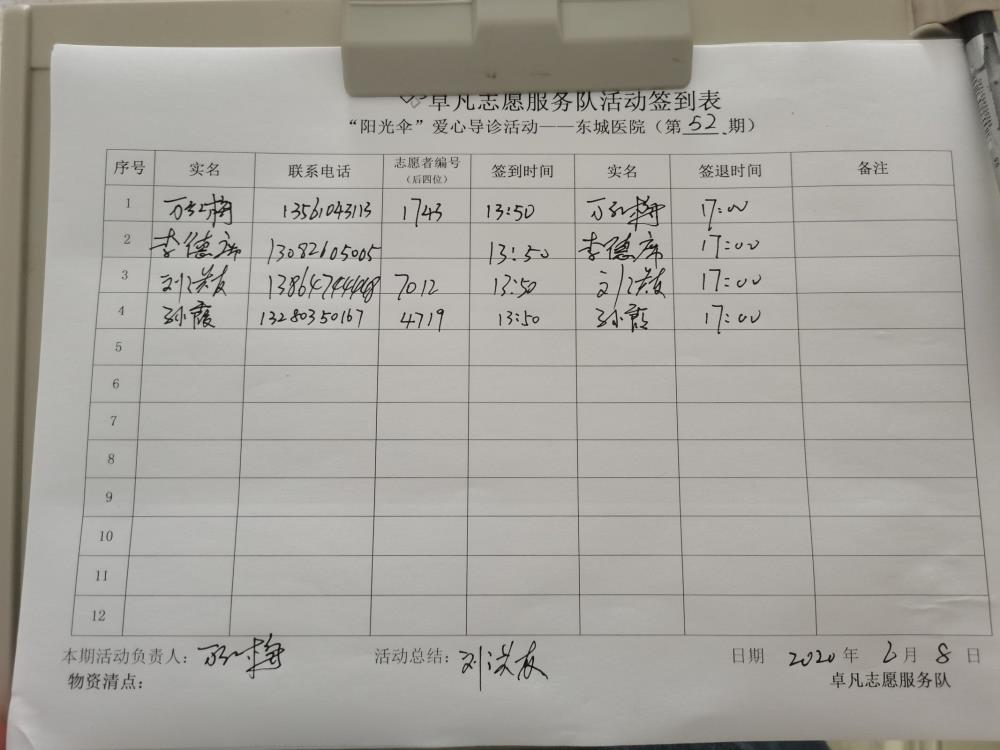 卓凡志愿服务队活动签到表
“阳光伞”爱心导诊活动——东城医院（第 52 期）
序号 实名 联系电话 志愿者编号（后四位） 签到时间 实名 签退时间 备注
1 万红梅 13561043113 1743 13:50 万红梅 17:00
2 李德席 13082605005 13:50 李德席 17:00
3 刘洪友 13864744448 7012 13:50 刘洪友 17:00
4 孙霞 13280350167 4719 13:50 孙霞 17:00
5
6
7
8
9
10
11
12
本期活动负责人：万红梅 活动总结：刘洪友 日期 2020 年 6 月 8 日
物资清点： 卓凡志愿服务队